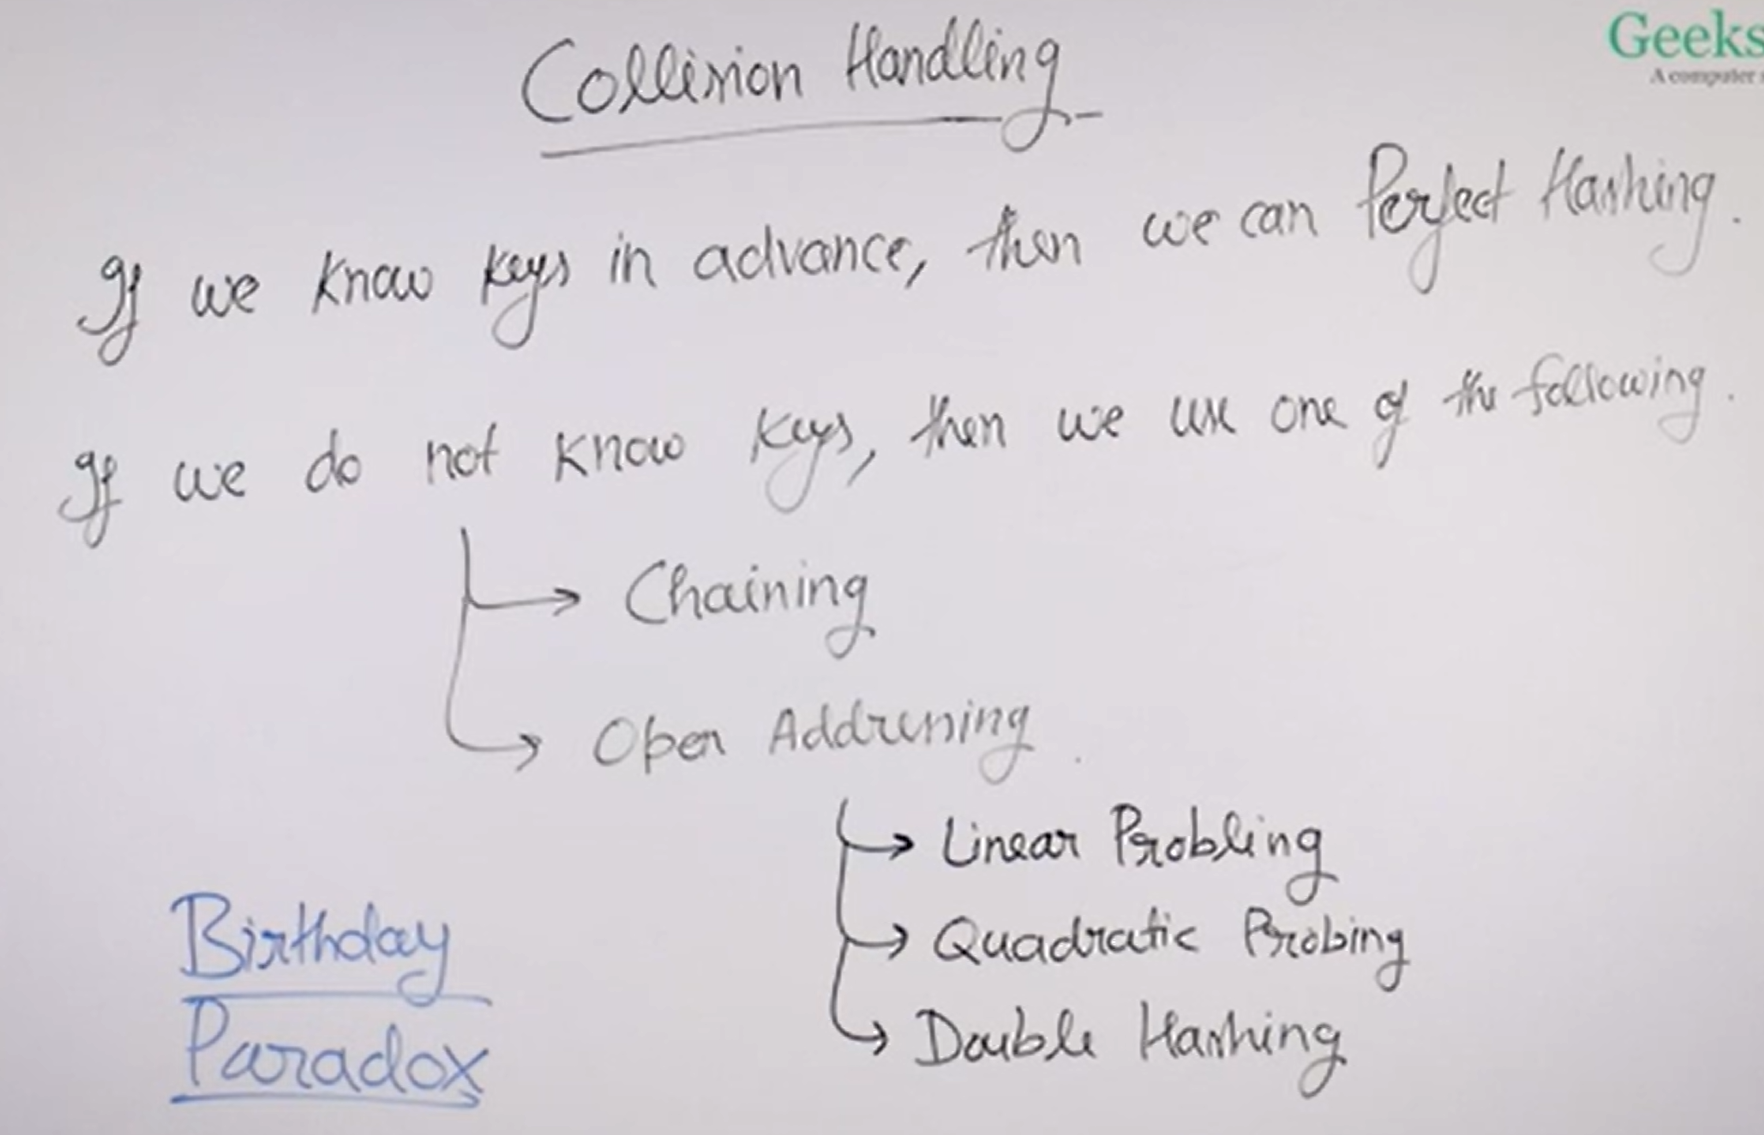 Geeks
A computer
Collision Handling
If we know keys in advance, then we can Perfect Hashing.
If we do not know keys, then we use one of the following.
Chaining
Open Addressing
Linear Probling
Quadratic Probing
Double Hashing
Birthday
Paradox